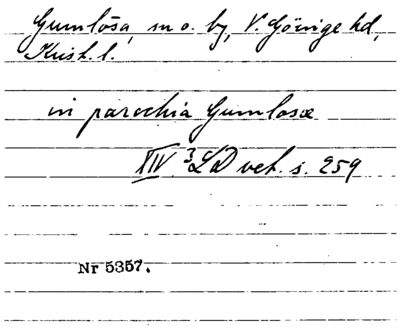 Gumlösa, sn o. by, V. Göinge hd,
Krist. l.
in parochia Gumlosæ
XIV 3 LD vet. s. 259
Nr 5357.